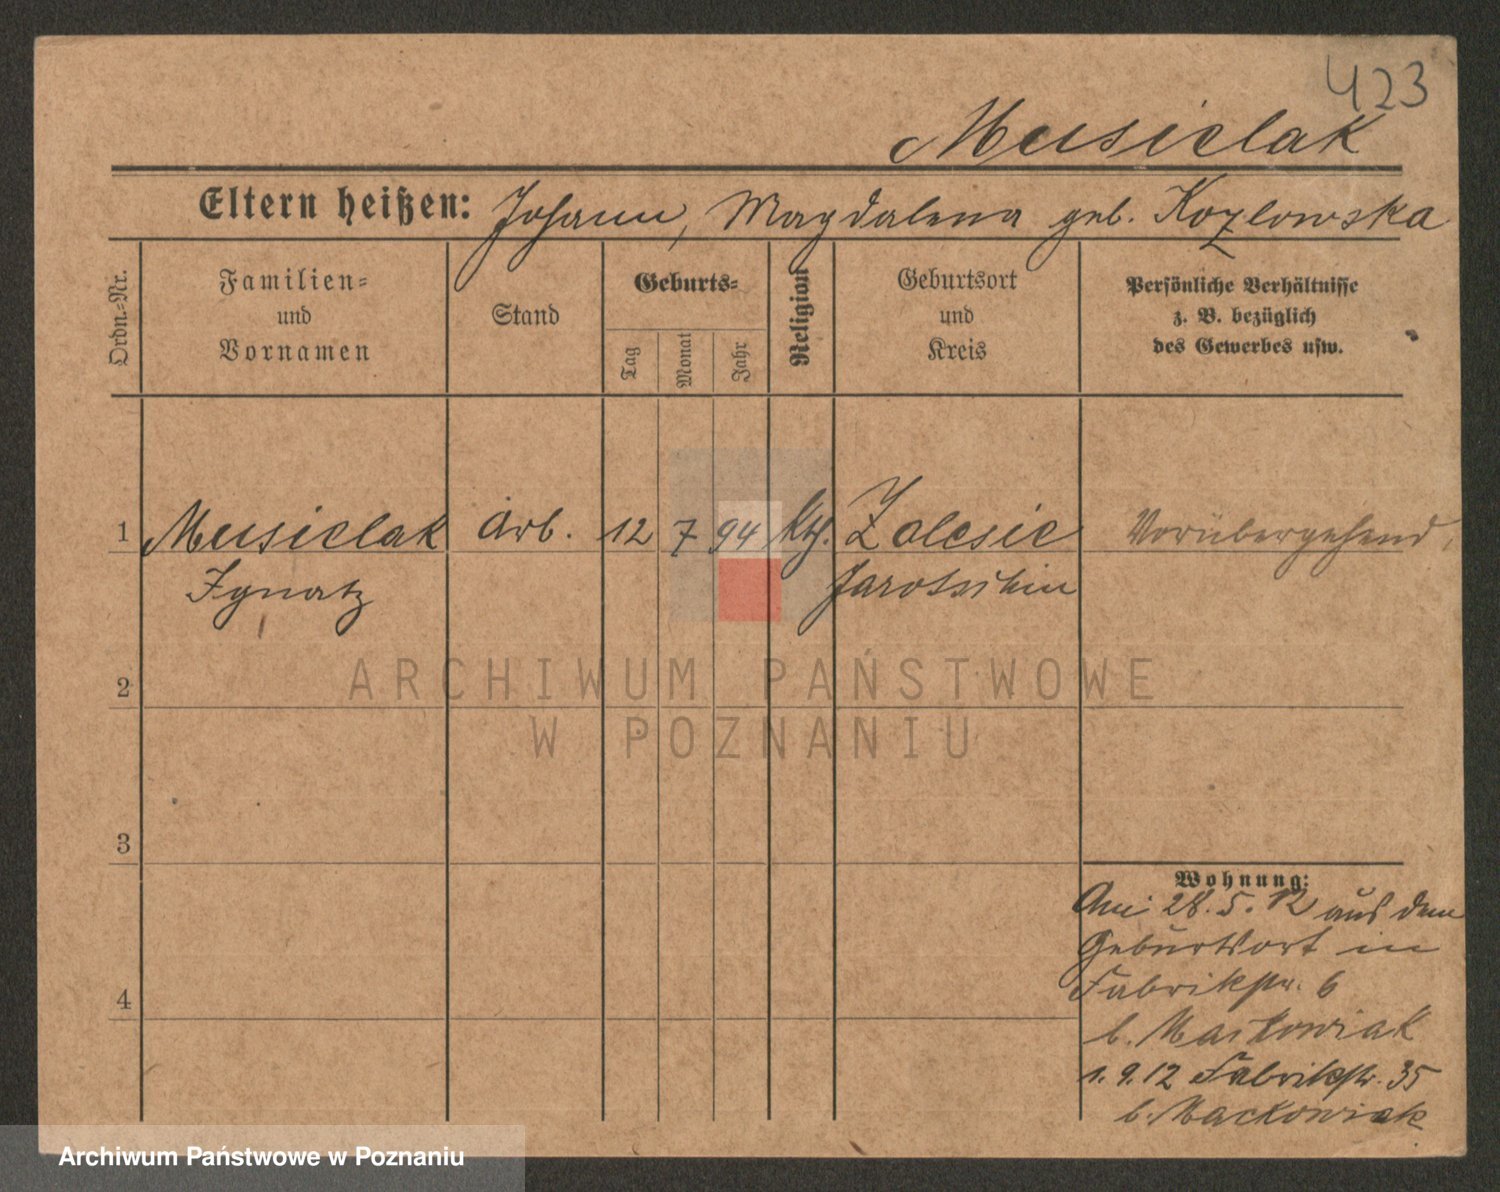 423
Musielak
Eltern heißen: Johann, Magdalena geb. Kozlowska
Ordn.-Nr.
Familien-
und
Vornamen
Stand
Geburts-
Tag
Monat
Jahr
Religion
Geburtsort
und
Kreis
Persönliche Verhältnisse
z. B. bezüglich
des Gewerbes usw.
1 Musielak Arb. 12 7 94 kth. Zalesie Vorübergehend.
Ignatz Jarotschin
2
ARCHIWUM PAŃSTWOWE
W POZNANIU
3
Wohnung:
Am 28.5.12 aus dem
Geburtsort in
4 Fabrikstr. 6
b. Maćkowiak
1.9.12 Fabrikstr. 35
b. Mackowiak
Archiwum Państwowe w Poznaniu